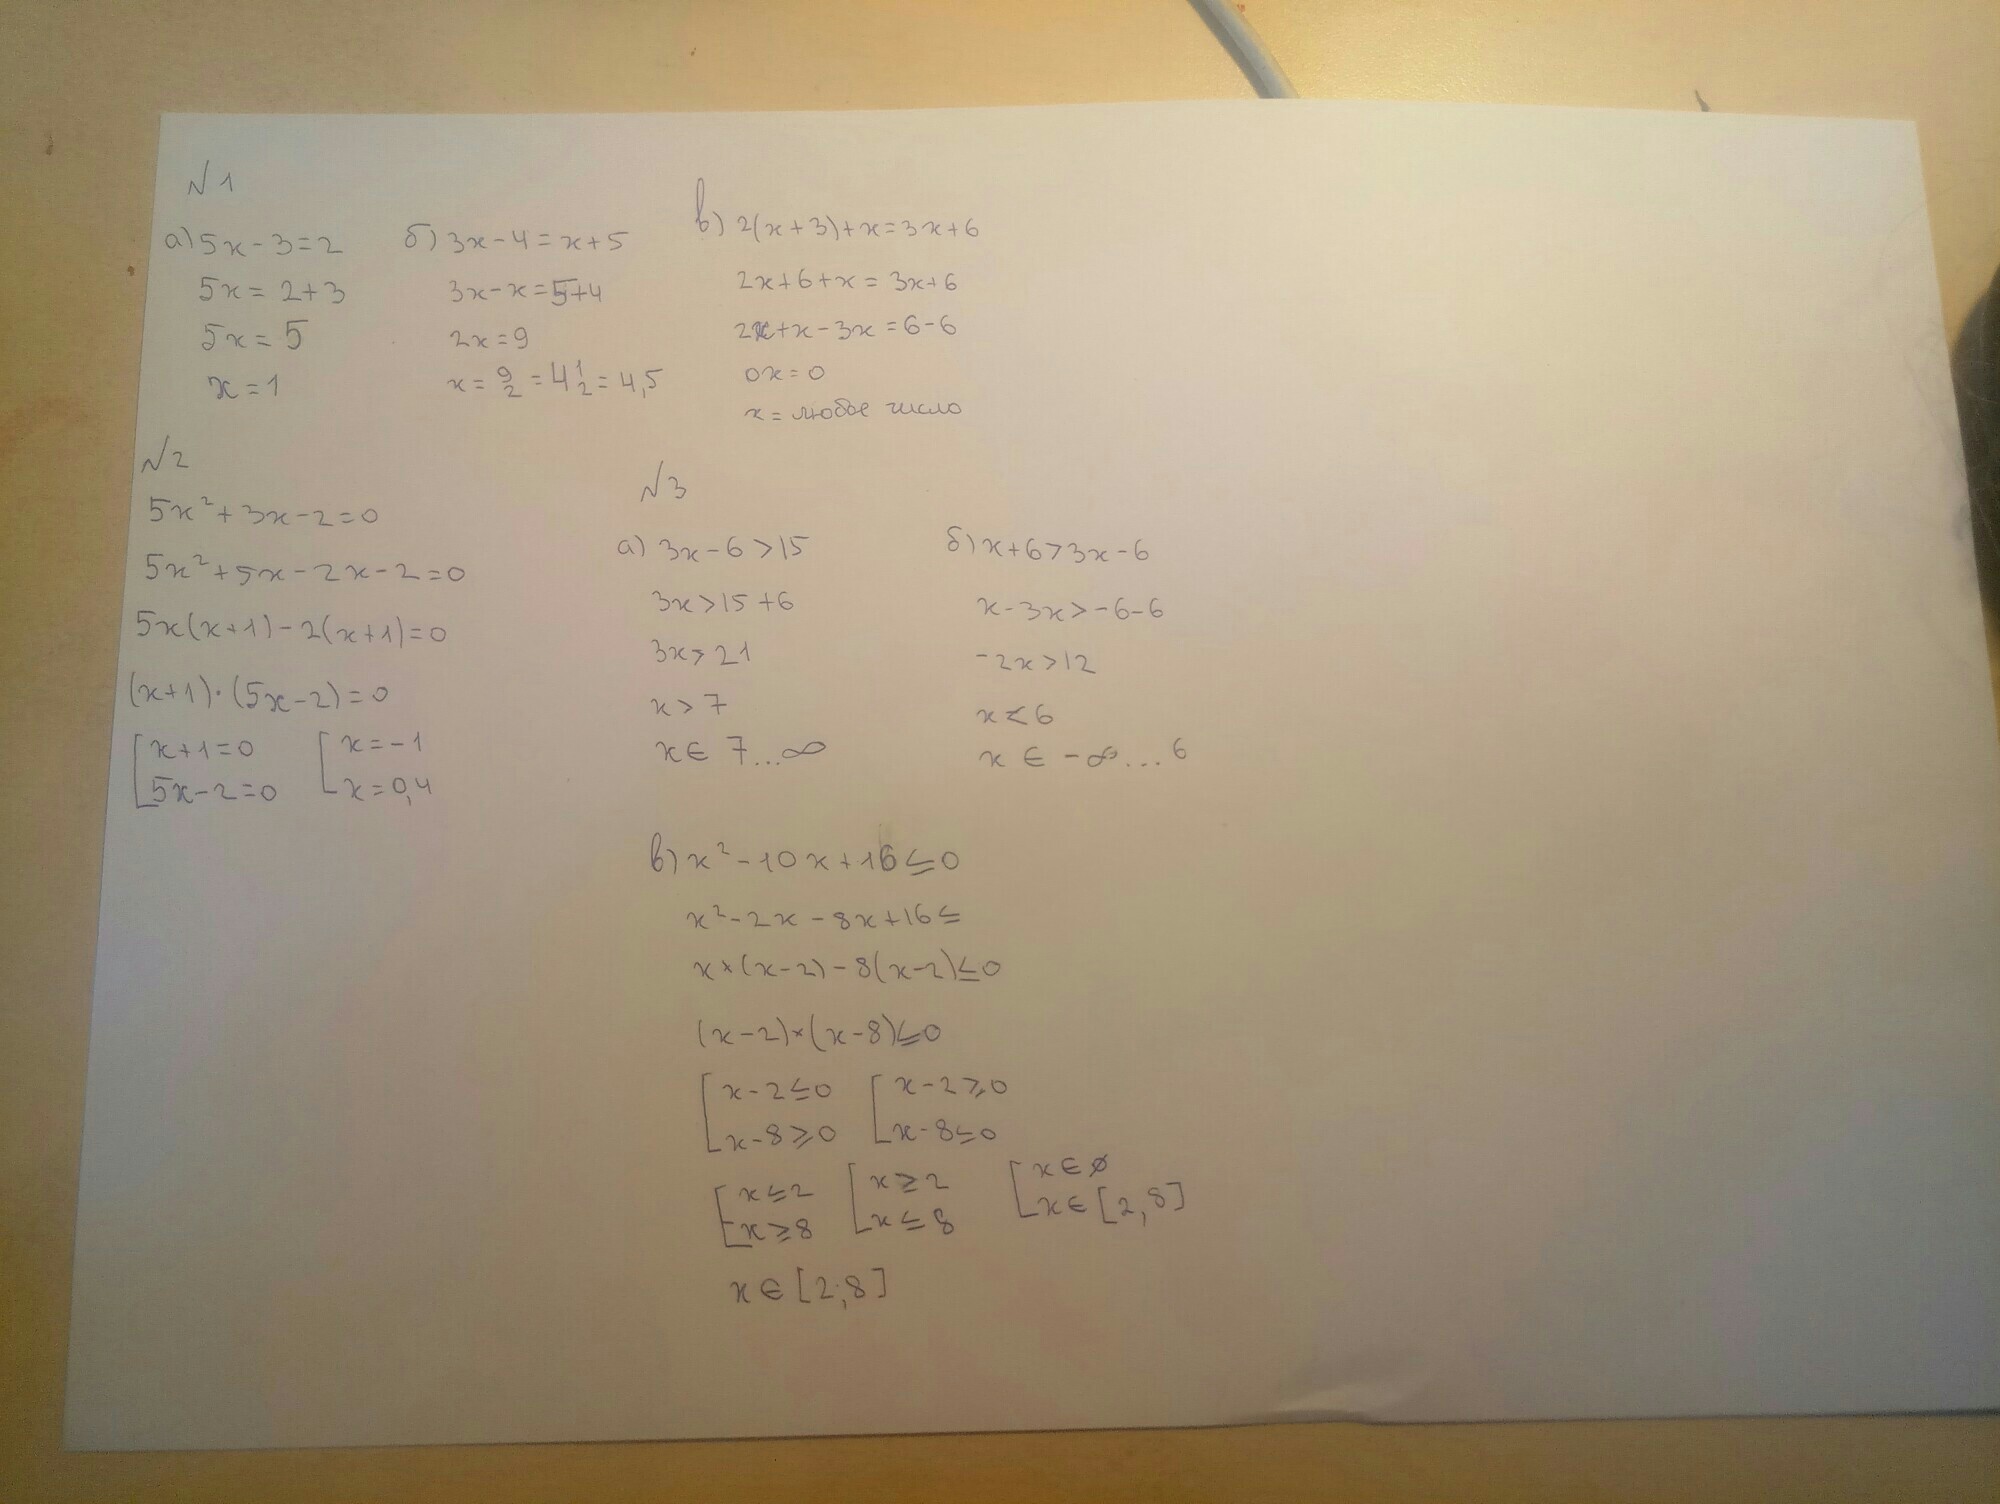 №1
а) 5x - 3 = 2
5x = 2 + 3
5x = 5
x = 1
б) 3x - 4 = x + 5
3x - x = 5 + 4
2x = 9
x = 9/2 = 4 1/2 = 4,5
в) 2(x + 3) + x = 3x + 6
2x + 6 + x = 3x + 6
2x + x - 3x = 6 - 6
0x = 0
x = любое число
№2
5x² + 3x - 2 = 0
5x² + 5x - 2x - 2 = 0
5x(x + 1) - 2(x + 1) = 0
(x + 1) · (5x - 2) = 0
[ x + 1 = 0 [ x = -1
[ 5x - 2 = 0 [ x = 0,4
№3
а) 3x - 6 > 15
3x > 15 + 6
3x > 21
x > 7
x ∈ 7...∞
б) x + 6 > 3x - 6
x - 3x > -6 - 6
-2x > 12
x < 6
x ∈ -∞...6
в) x² - 10x + 16 ≤ 0
x² - 2x - 8x + 16 ≤
x * (x - 2) - 8(x - 2) ≤ 0
(x - 2) * (x - 8) ≤ 0
[ x - 2 ≤ 0 [ x - 2 ≥ 0
[ x - 8 ≥ 0 [ x - 8 ≤ 0
[ x ≤ 2 [ x ≥ 2 [ x ∈ ∅
[ x ≥ 8 [ x ≤ 8 [ x ∈ [2, 8]
x ∈ [2; 8]